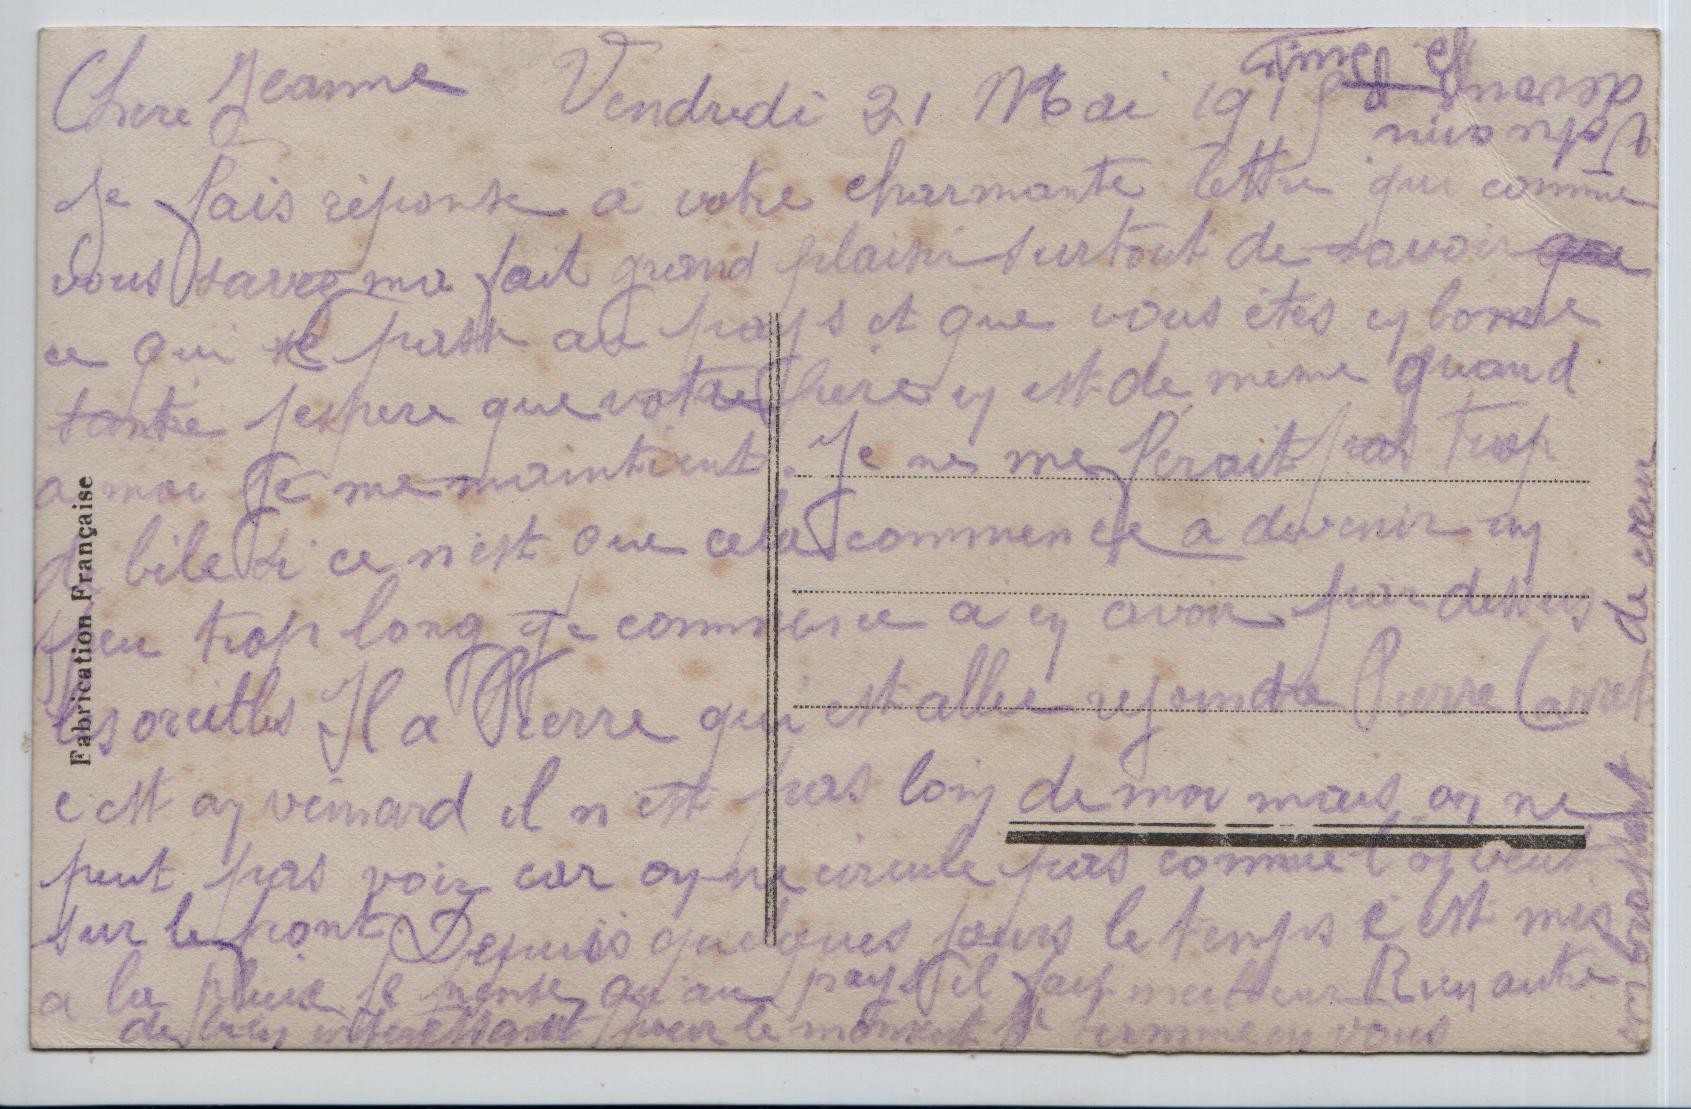 Chere Jeanne Vendredi 21 Mai 1915
Je fais réponse a votre charmante lettre qui comme
vous savez ma fait grand plaisir surtout de savoir que
ce qui se passe au pays et que vous êtes ey bonne
santée jespere que votre frère ey est de même quand
a moi Je me maintient. Je ne me ferait pas trop
de bile si ce n'est que cela commence a devenir uy
peu trop long Je commence a ey avoir par dessus
les oreilles Il a Pierre qui est allée rejoindre Pierre Carret
c est ay veinard il n est pas loiy de moi mais oy ne
peut pas voir car oy ne circule pas comme l oy veut
sur le front Depuis quelques jours le temps c est mis
a la pluie je pense qu'au pays il fait meilleur Riey autre
de biey interessant pour le moment Je termine ey vous
embrassant de cœur
Fabrication Française